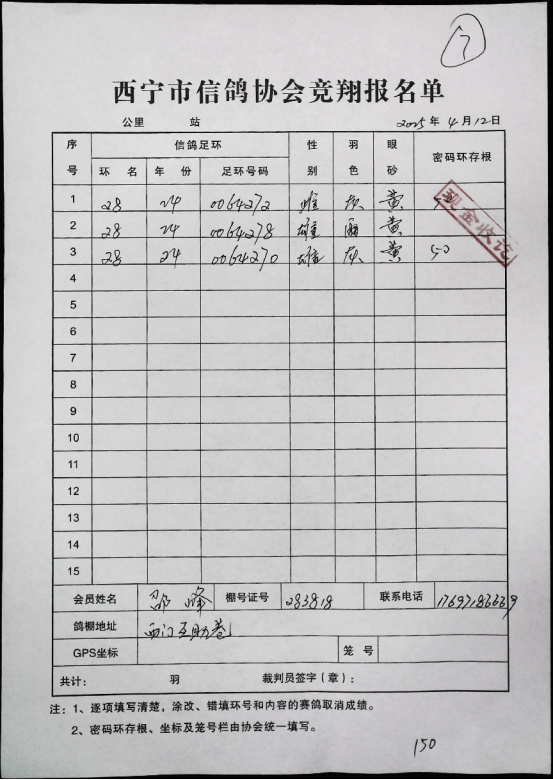 7
西宁市信鸽协会竞翔报名单
公里 站 2025年4月12日
序号 信鸽足环 性别 羽色 眼砂 密码环存根
环名 年份 足环号码
1 28 24 0064272 雄 灰 黄
2 28 24 0064278 雄 雨 黄
3 28 24 0064270 雄 灰 黄 50
现金收讫
4
5
6
7
8
9
10
11
12
13
14
15
会员姓名 邵峰 棚号证号 283818 联系电话 17697186669
鸽棚地址 西门互助巷
GPS坐标 笼号
共计： 羽 裁判员签字（章）：
注：1、逐项填写清楚，涂改、错填环号和内容的赛鸽取消成绩。
2、密码环存根、坐标及笼号栏由协会统一填写。
150